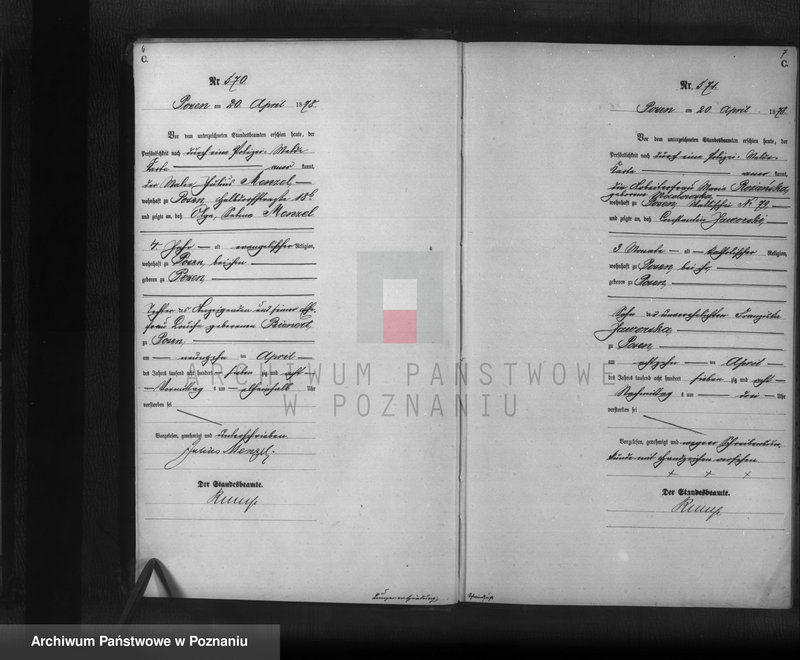 6
C.
Nr. 570.
Posen am 20. April 1878.
Vor dem unterzeichneten Standesbeamten erschien heute, der
Persönlichkeit nach durch eine Polizei-Melde
Karte anerkannt,
der Maler Julius Menzel
wohnhaft zu Posen, 18b
und zeigte an, daß Olga, Selma Menzel
4 Jahr alt evangelischer Religion,
wohnhaft zu Posen, bei ihm
geboren zu Posen,
Tochter des Anzeigenden und seiner Ehe-
frau Louise geborenen
zu Posen,
am neunzehn ten April
des Jahres tausend acht hundert sieben zig und acht
Vormittag s um elfeinhalb Uhr
verstorben sei
Vorgelesen, genehmigt und unterschrieben
Julius Menzel.
Der Standesbeamte.
7
C.
Nr. 571.
Posen am 20. April 1878.
Vor dem unterzeichneten Standesbeamten erschien heute, der
Persönlichkeit nach durch eine Polizei-Melde-
Karte anerkannt,
die Arbeiterfrau Maria Rozańska,
geborene
wohnhaft zu Posen, Wallischei Nr. 79
und zeigte an, daß Constantin Jaworski,
3 Monate alt katholischer Religion,
wohnhaft zu Posen, bei ihr,
geboren zu Posen,
Sohn der unverehelichten Franziska
Jaworska,
zu Posen,
am achtzehn ten April
des Jahres tausend acht hundert sieben zig und acht
Nachmittag s um drei Uhr
verstorben sei
Vorgelesen, genehmigt und wegen Schreibensun-
kunde mit Handzeichen versehen
+ + +
Der Standesbeamte.
ARCHIWUM PAŃSTWOWE
W POZNANIU
Archiwum Państwowe w Poznaniu